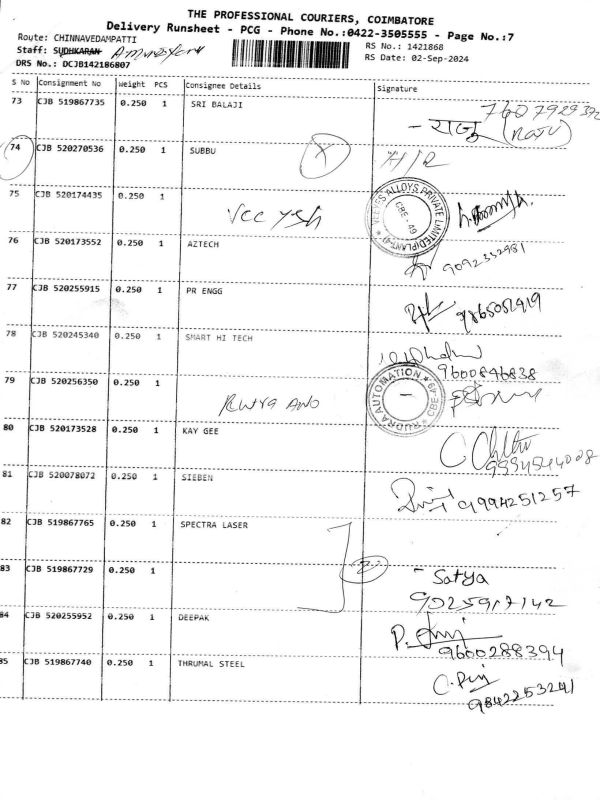 THE PROFESSIONAL COURIERS, COIMBATORE
Delivery Runsheet - PCG - Phone No.:0422-3505555 - Page No.:7
Route: CHINNAVEDAMPATTI
RS No.: 1421868
Staff: SUDHKARAN
RS Date: 02-Sep-2024
DRS No.: DCJB142186807
S No Consignment No Weight PCS Consignee Details Signature
73 CJB 519867735 0.250 1 SRI BALAJI
7607929372
- राजु (RAJU)
74 CJB 520270536 0.250 1 SUBBU X H/R
75 CJB 520174435 0.250 1
VEEYES ALLOYS PRIVATE LIMITED(PLANT-4) CBE - 49
76 CJB 520173552 0.250 1 AZTECH
9092352981
77 CJB 520255915 0.250 1 PR ENGG
9865051419
78 CJB 520245340 0.250 1 SMART HI TECH
9600846838
79 CJB 520256350 0.250 1
RUDRA AUTOMATION CBE-49
80 CJB 520173528 0.250 1 KAY GEE
9994544028
81 CJB 520078072 0.250 1 SIEBEN
9994251257
82 CJB 519867765 0.250 1 SPECTRA LASER
2
83 CJB 519867729 0.250 1 - Satya
9025917142
84 CJB 520255952 0.250 1 DEEPAK
9600288394
85 CJB 519867740 0.250 1 THRUMAL STEEL
9842253241